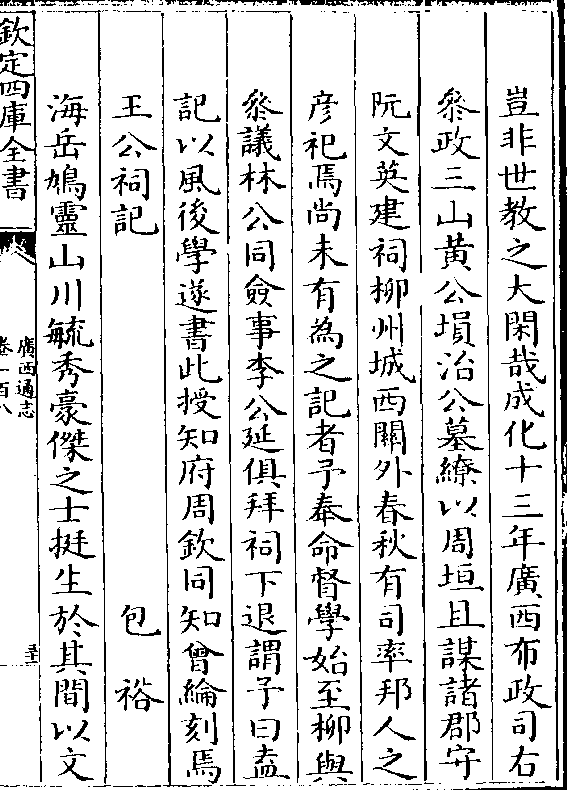 豈非世教之大閑哉成化十三年廣西布政司右
叅政三山黄公塤治公墓繚以周垣且謀諸郡守
阮文英建祠柳州城西關外春秋有司率邦人之
彦祀焉尚未有為之記者予奉命督學始至柳與
叅議林公同僉事李公延俱拜祠下退謂予曰盍
記以風後學遂書此授知府周欽同知曾綸刻焉
王公祠記 包裕
海岳鳩靈山川毓秀豪傑之士挺生於其間以文
欽定四庫全書
廣西通志
卷一百八